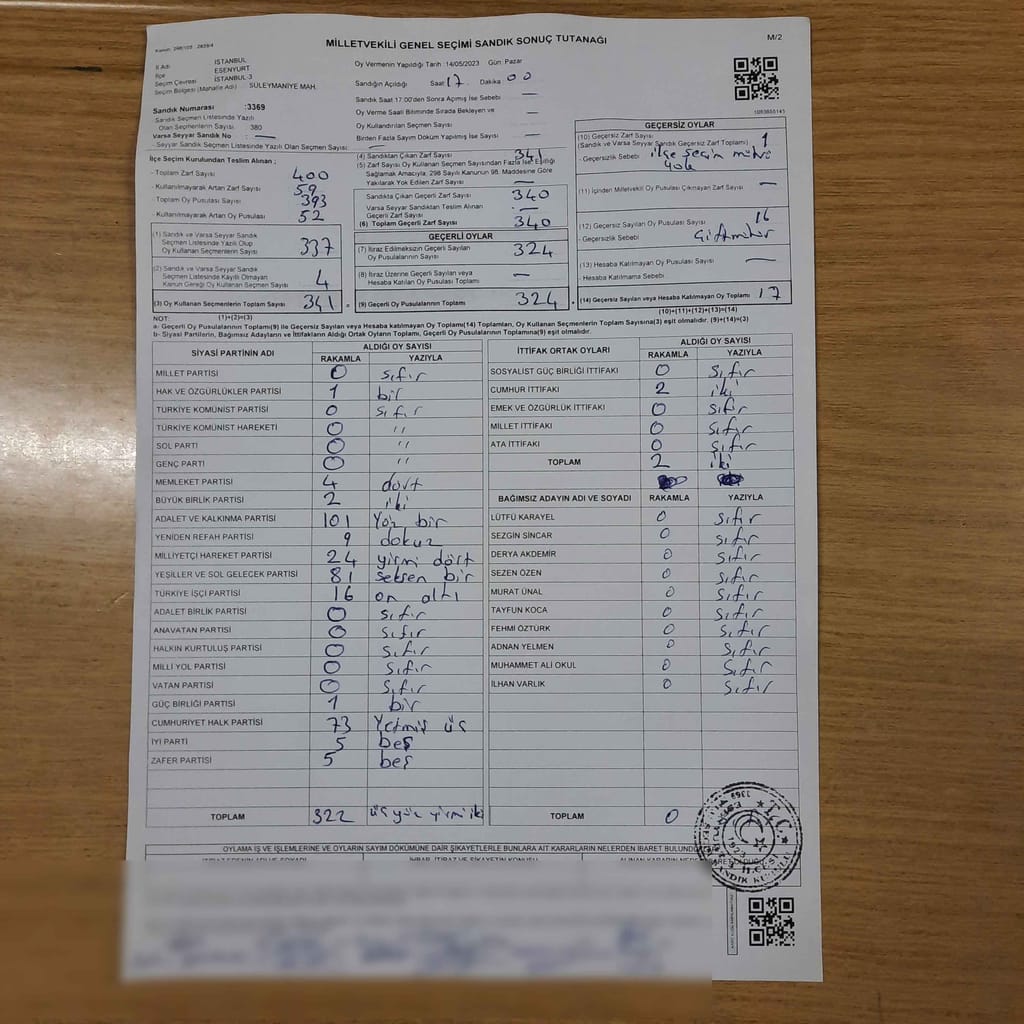 Kanun: 298/105 - 2839/4
MİLLETVEKİLİ GENEL SEÇİMİ SANDIK SONUÇ TUTANAĞI
M/2
İl Adı : İSTANBUL
İlçe : ESENYURT
Seçim Çevresi : İSTANBUL-3
Seçim Bölgesi (Mahalle Adı) : SÜLEYMANİYE MAH.
Sandık Numarası : 3369
Sandık Seçmen Listesinde Yazılı
Olan Seçmenlerin Sayısı : 380
Varsa Seyyar Sandık No : —
- Seyyar Sandık Seçmen Listesinde Yazılı Olan Seçmen Sayısı: —
Oy Vermenin Yapıldığı Tarih :14/05/2023 Gün: Pazar
Sandığın Açıldığı Saat 17. Dakika 00
Sandık Saat 17:00'den Sonra Açılmış İse Sebebi —
Oy Verme Saati Bitiminde Sırada Bekleyen ve
Oy Kullandırılan Seçmen Sayısı —
Birden Fazla Sayım Döküm Yapılmış İse Sayısı —
İlçe Seçim Kurulundan Teslim Alınan ;
- Toplam Zarf Sayısı 400
- Kullanılmayarak Artan Zarf Sayısı 59
Toplam Oy Pusulası 393
- Kullanılmayarak Artan Oy Pusulası 52
(1) Sandık ve Varsa Seyyar Sandık
Seçmen Listesinde Yazılı Olup
Oy Kullanan Seçmenlerin Sayısı 337
(2) Sandık ve Varsa Seyyar Sandık
Seçmen Listesinde Kayıtlı Olmayan
Kanun Gereği Oy Kullanan Seçmen Sayısı 4
(3) Oy Kullanan Seçmenlerin Toplam Sayısı 341
(1)+(2)=(3)
(4) Sandıktan Çıkan Zarf Sayısı 341
(5) Zarf Sayısı Oy Kullanan Seçmen Sayısından Fazla İse, Eşitliği
Sağlamak Amacıyla, 298 Sayılı Kanunun 98. Maddesine Göre
Yakılarak Yok Edilen Zarf Sayısı —
Sandıkta Çıkan Geçerli Zarf Sayısı 340
Varsa Seyyar Sandıktan Teslim Alınan
Geçerli Zarf Sayısı —
(6) Toplam Geçerli Zarf Sayısı 340
GEÇERLİ OYLAR
(7) İtiraz Edilmeksizin Geçerli Sayılan
Oy Pusulalarının Sayısı 324
(8) İtiraz Üzerine Geçerli Sayılan veya
Hesaba Katılan Oy Pusulası Sayısı —
(9) Geçerli Oy Pusulalarının Toplamı 324
GEÇERSİZ OYLAR
(10) Geçersiz Zarf Sayısı 1
(Sandık ve Varsa Seyyar Sandık Geçersiz Zarf Toplamı)
- Geçersizlik Sebebi ilçe seçim mührü
yok
(11) İçinden Milletvekili Oy Pusulası Çıkmayan Zarf Sayısı —
(12) Geçersiz Sayılan Oy Pusulası Sayısı 16
- Geçersizlik Sebebi Çift mühür
(13) Hesaba Katılmayan Oy Pusulası Sayısı —
- Hesaba Katılmama Sebebi
(14) Geçersiz Sayılan veya Hesaba Katılmayan Oy Toplamı 17
(10)+(11)+(12)+(13)=(14)
NOT:
a- Geçerli Oy Pusulalarının Toplamı(9) ile Geçersiz Sayılan veya Hesaba katılmayan Oy Toplamı(14) Toplamları, Oy Kullanan Seçmenlerin Toplam Sayısına(3) eşit olmalıdır. (9)+(14)=(3)
b- Siyasi Partilerin, Bağımsız Adayların ve İttifakların Aldığı Ortak Oyların Toplamı, Geçerli Oy Pusulalarının Toplamına(9) eşit olmalıdır.
SİYASİ PARTİNİN ADI ALDIĞI OY SAYISI
RAKAMLA YAZIYLA
MİLLET PARTİSİ 0 sıfır
HAK VE ÖZGÜRLÜKLER PARTİSİ 1 bir
TÜRKİYE KOMÜNİST PARTİSİ 0 sıfır
TÜRKİYE KOMÜNİST HAREKETİ 0 "
SOL PARTİ 0 "
GENÇ PARTİ 0 "
MEMLEKET PARTİSİ 4 dört
BÜYÜK BİRLİK PARTİSİ 2 iki
ADALET VE KALKINMA PARTİSİ 101 Yüz bir
YENİDEN REFAH PARTİSİ 9 dokuz
MİLLİYETÇİ HAREKET PARTİSİ 24 yirmi dört
YEŞİLLER VE SOL GELECEK PARTİSİ 81 seksen bir
TÜRKİYE İŞÇİ PARTİSİ 16 on altı
ADALET BİRLİK PARTİSİ 0 sıfır
ANAVATAN PARTİSİ 0 sıfır
HALKIN KURTULUŞ PARTİSİ 0 sıfır
MİLLİ YOL PARTİSİ 0 sıfır
VATAN PARTİSİ 0 sıfır
GÜÇ BİRLİĞİ PARTİSİ 1 bir
CUMHURİYET HALK PARTİSİ 73 Yetmiş üç
İYİ PARTİ 5 beş
ZAFER PARTİSİ 5 beş
TOPLAM 322 üç yüz yirmi iki
İTTİFAK ORTAK OYLARI ALDIĞI OY SAYISI
RAKAMLA YAZIYLA
SOSYALİST GÜÇ BİRLİĞİ İTTİFAKI 0 sıfır
CUMHUR İTTİFAKI 2 iki
EMEK VE ÖZGÜRLÜK İTTİFAKI 0 sıfır
MİLLET İTTİFAKI 0 sıfır
ATA İTTİFAKI 0 sıfır
TOPLAM 2 iki
BAĞIMSIZ ADAYIN ADI VE SOYADI RAKAMLA YAZIYLA
LÜTFÜ KARAYEL 0 sıfır
SEZGİN SİNCAR 0 sıfır
DERYA AKDEMİR 0 sıfır
SEZEN ÖZEN 0 sıfır
MURAT ÜNAL 0 sıfır
TAYFUN KOCA 0 sıfır
FEHMİ ÖZTÜRK 0 sıfır
ADNAN YELMEN 0 sıfır
MUHAMMET ALİ OKUL 0 sıfır
İLHAN VARLIK 0 sıfır
TOPLAM 0
OYLAMA İŞ VE İŞLEMLERİNE VE OYLARIN SAYIM DÖKÜMÜNE DAİR ŞİKAYETLERLE BUNLARA AİT KARARLARIN NELERDEN İBARET BULUNDUĞU